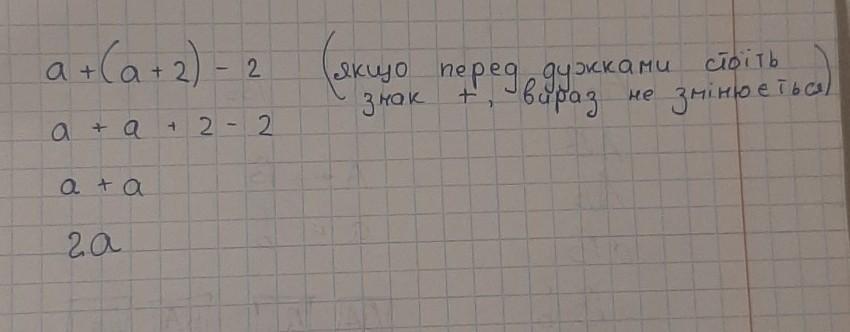 a + (a + 2) - 2 (якщо перед дужками стоїть
знак +, вираз не змінюється)
a + a + 2 - 2
a + a
2a